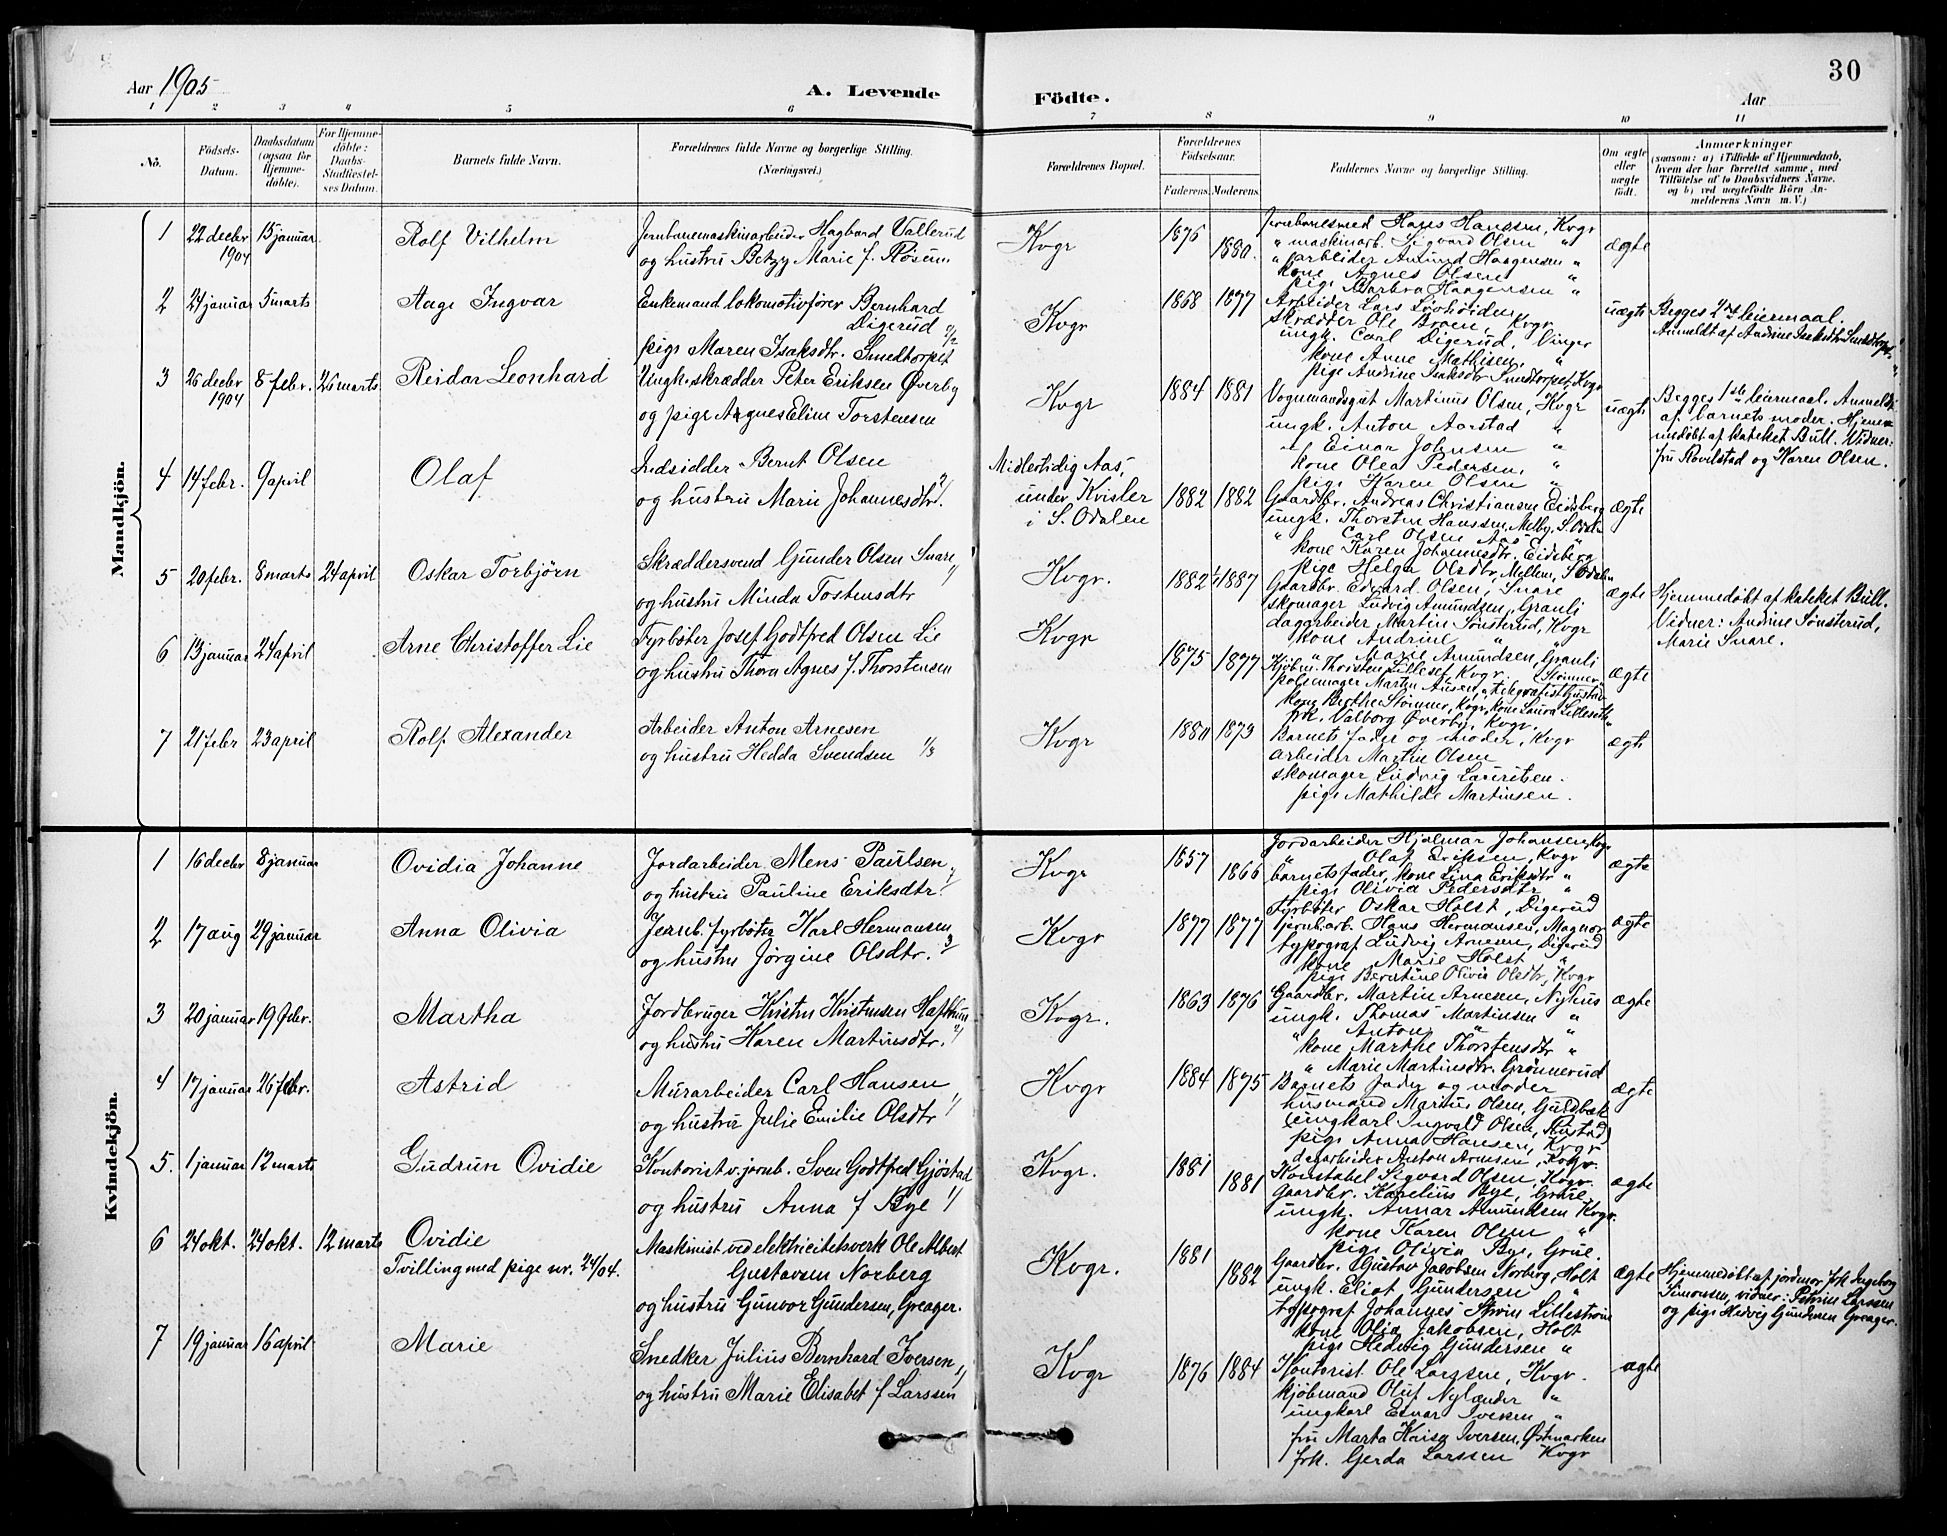 30
Aar 1905
A. Levende
Födte.
Aar
1 2 3 4 5 6 7 8 9 10 11
No.
Födsels-
Datum.
Daabsdatum
(ogsaa for
Hjemme-
döbte).
For Hjemme-
döbte:
Daabs-
Stadfæstel-
ses Datum.
Barnets fulde Navn.
Forældrenes fulde Navne og borgerlige Stilling.
(Næringsvei.)
Forældrenes Bopæl.
Forældrenes
Födselsaar.
Faderens. Moderens.
Faddernes Navne og borgerlige Stilling.
Om ægte
eller
uægte
födt.
Anmærkninger
(saasom: a) i Tilfælde af Hjemmedaab,
hvem der har forrettet samme, med
Tilföielse af to Daabsvidners Navne,
og b) ved uægtefödte Börn An-
melderens Navn m. V.)
Mandkjön.
1 22 decbr 1904 15 januar
Rolf Vilhelm
Jernbanemaskinarbeider Hagband Vallerud
og hustru Betzy Marie f. Røsum
Kvgr
1876 1880.
Jernbanesmed Hans Hanssen, Kvgr
" maskinarb. Sigvard Olsen "
" arbeider Amund Haagensen "
kone Agnes Olsen "
pige Barbra Haagensen "
ægte
2 24 januar 5 marts
Aage Ingvar
Enkemand lokomotivfører Bernhard
Digerud
pige Maren Isaksdtr. Smedtorpet
Kvgr
1868 1877
Arbeider Lars
skrædder Ole Broen, Kvgr
ungk. Carl Digerud, Vinger
kone Anne Mathisen, "
pige Andrine Isaksdtr Smdtorpet, Kvgr
uægte
Begges 2det leiermaal.
Anmeldt af Andrine Isaksdtr Smedtorpet.
3 26 decbr 1904 8 febr. 26 marts
Reidar Leonhard
Ungk. skrædder Peter Eriksen Øverby
og pige Agnes Eline Torstensen
Kvgr
1884 1881
Vognmandsgut Martinus Olsen, Kvgr
ungk. Anton Aarstad "
" Einar Johnsen "
kone Olea Pedersen, "
pige Karen Olsen "
uægte
Begges 1ste leiermaal. Anmeldt
af barnets moder. Hjem-
medøbt af kateket Bull. Vidner:
fru Rovilstad og Karen Olsen.
4 14 febr. 9 april
Olaf
Indsidder Bernt Olsen
og hustru Marie Johannesdtr.
Midlertidig Aas,
under Kvisler
i S. Odalen
1882 1882
Gaardbr. Andreas Christiansen Eidsberg
ungk. Thorsten Hanssen, Melby, S. Odalen
" Carl Olsen Aas "
kone Karen Johannesdtr. Eidsberg
pige Helga Olsdtr, Mellem, S. Odalen
ægte
5 20 febr. 8 marts 24 april
Oskar Torbjørn
Skræddersvend Gunder Olsen Snare
og hustru Minda Tostensdtr
Kvgr.
1882 1887
Gaardbr. Edvard Olsen, Snare
skomager Ludvig Amundsen, Granli
dagarbeider Martin Sønsterud, Kvgr
kone Andrine " "
" Marie Amundsen, Granli
ægte
Hjemmedøbt af kateket Bull.
Vidner: Andrine Sønsterud,
Marie Snare.
6 13 januar 24 april
Arne Christoffer Lie
Fyrbøter Josef Godtfred Olsen Lie
og hustru Thora Agnes f. Thorstensen
Kvgr
1875 1877
Kjøbm. Thorsten Lilleset, Kvgr.
pølsemager Martin Ausen, " telegrafist Gustav Stømner "
kone Berthe Stømner, Kvgr, kone Laura Lilleseth "
frk. Valborg Øverby, Kvgr.
ægte
7 21 febr 23 april
Rolf Alexander
Arbeider Anton Arnesen
og hustru Hedda Svendsen 1/3
Kvgr
1880 1873
Barnets fader og moder, Kvgr
arbeider Martin Olsen
skomager Ludvig Lauritzen.
pige Mathilde Martinsen.
ægte
Kvindekjön.
1 16 decbr 8 januar
Ovidia Johanne
Jordarbeider Mens Paulsen
og hustru Pauline Eriksdtr.
Kvgr
1857 1866
Jordarbeider Hjalmar Johansen, Kvgr
" Olaf Eriksen, Kvgr
barnets fader, kone Lina Eriksdtr "
pige Olivia Pedersdtr "
ægte
2 17 aug 29 januar
Anna Olivia
Jernb. fyrbøter Karl Hermansen
og hustru Jørgine Olsdtr.
Kvgr
1877 1877
Fyrbøter Oskar Holst, Digerud
jernb.arb. Hans Hermansen, Magnor
typograf Ludvig Arnesen, Digerud
kone Marie Holst "
pige Berntine Olivia Olsdtr, Kvgr
ægte
3 20 januar 19 febr.
Martha
Jordbruger Kristen Kristensen
og hustru Karen Martinsdtr.
Kvgr.
1863 1876
Gaardbr. Martin Arnesen, Nyhus
ungk. Thomas Martinsen "
" Anton " "
kone Marthe Thorstensdtr "
" Marie Martinsdtr. Grønnerud
ægte
4 17 januar 26 febr.
Astrid
Murarbeider Carl Hansen
og hustru Julie Emilie Olsdtr
Kvgr
1884 1875
Barnets fader og moder
husmand Marius Olsen, Guldbæk
(ungkarl Ingvald Olsen, Rustad)
pige Anna Hansen, Kvgr
arbeider Anton Arnesen, Kvgr.
ægte
5. 1 januar 12 marts
Gudrun Ovidie
Kontorist v. jernb. Sven Godtfred Gjøstad
og hustru Anna f Bye
Kvgr.
1881 1881
Konstabel Sigvard Olsen, Kvgr.
Gaardbr. Karelius Bye, Grue
ungk. Annar Amundsen Kvgr.
kone Karen Olsen "
pige Olivia Bye, Grue.
ægte
6 24 okt. 24 okt. 12 marts
Ovidie
Tvilling med pige nr. 24/04.
Maskinist ved elektricitetsverk Ole Albert
Gustavsen Norberg
og hustru Gunvor Gundersen, Greager.
Kvgr.
1881 1882
Gaardbr. Gustav Jacobsen Norberg, Holt
ungk. Eliot Gundersen "
typograf Johannes Lillestrøm
kone Olia Jakobsen, Holt
pige Hedevig Gundersen "
ægte
Hjemmedøbt af jordmor frk Ingeborg
Simonsen, vidner: Petrine Larssen
og pige Hedvig Gundersen Greager.
7 19 januar 16 april
Marie
Snedker Julius Bernhard Iversen
og hustru Marie Elisabet f Larssen
Kvgr
1876 1884
Kontorist Ole Larssen, Kvgr.
kjøbmand Oluf Nylænder "
ungkarl Einar Iversen "
fru Marta Kaisa Iversen, Østmarken
frk. Gerda Larssen Kvgr
ægte